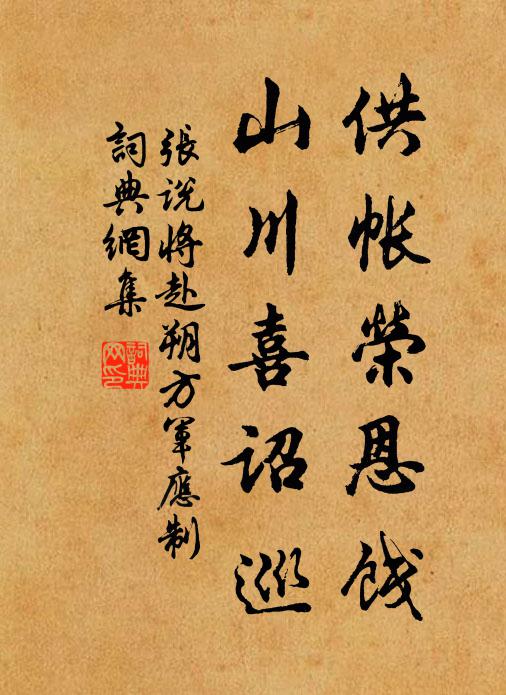 供帐榮恩饯
山川喜詔巡
張说将赴朔方軍應制
詞典網集
詞典
网印